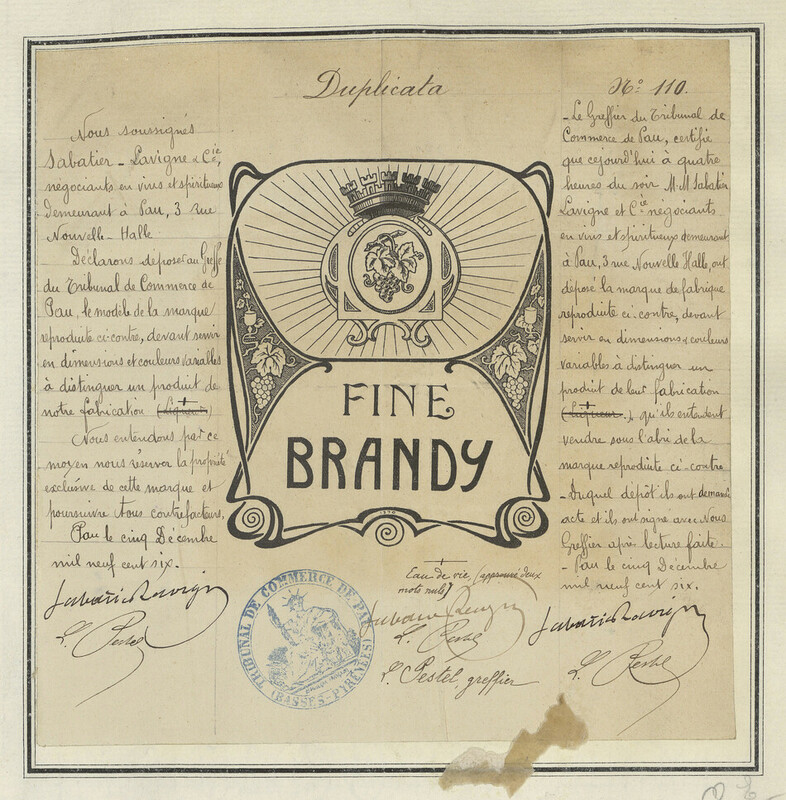 Duplicata
Nº 110.
Nous soussignés
Sabatier - Lavigne & Cie,
négociants en vins et spiritueux
demeurant à Pau, 3 rue
Nouvelle-Halle
Déclarons déposer au Greffe
du Tribunal de Commerce de
Pau, le modèle de la marque
reproduite ci-contre, devant servir
en dimensions et couleurs variables
à distinguer un produit de
notre fabrication (liqueur)
Nous entendons par ce
moyen nous réserver la propriété
exclusive de cette marque et
poursuivre tous contrefacteurs.
Pau le cinq Décembre
mil neuf cent six.
Sabatier Lavigne
L. Pestel
FINE
BRANDY
- Le Greffier du Tribunal de
Commerce de Pau, certifie
que cejourd'hui à quatre
heures du soir M.M. Sabatier
Lavigne et Cie négociants
en vins et spiritueux demeurant
à Pau, 3 rue Nouvelle Halle, ont
déposé la marque de fabrique
reproduite ci-contre, devant
servir en dimensions & couleurs
variables à distinguer un
produit de leur fabrication
(liqueur), qu'ils entendent
vendre sous l'abri de la
marque reproduite ci-contre
- Duquel dépôt ils ont demandé
acte et ils ont signé avec Nous
Greffier après lecture faite.
- Pau le cinq Décembre
mil neuf cent six.
Sabatier Lavigne
L. Pestel
Eau de vie, (approuvé deux
mots nuls)
Sabatier Lavigne
L. Pestel
L. Pestel, greffier
TRIBUNAL DE COMMERCE DE PAU
(BASSES-PYRÉNÉES)